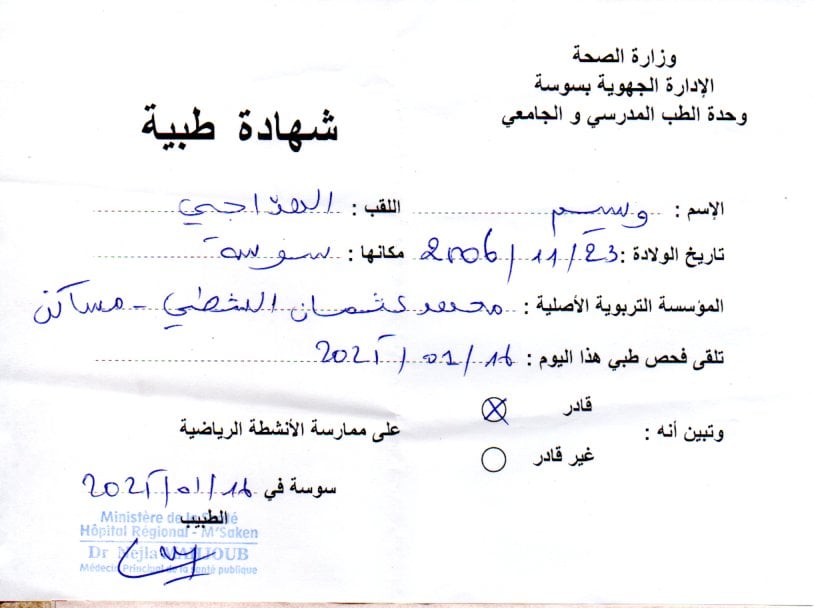 وزارة الصحة
الإدارة الجهوية بسوسة
وحدة الطب المدرسي و الجامعي
شهادة طبية
الإسم : وسيم اللقب :
تاريخ الولادة : 2006/11/23 مكانها : سوسة
المؤسسة التربوية الأصلية : محمد عثمان الشطي - مساكن
تلقى فحص طبي هذا اليوم : 2021/01/16
وتبين أنه :
قادر
غير قادر
على ممارسة الأنشطة الرياضية
سوسة في 2021/01/16
الطبيب
Ministère de la Santé
Hôpital Régional - M'Saken
Dr Nejla MAHJOUB
Médecin Principal de la santé publique